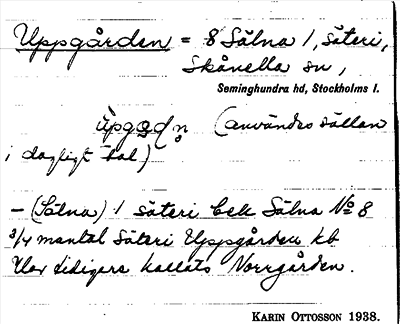 Uppgården = 8 Sälna 1, säteri,
Skånella sn,
Seminghundra hd, Stockholms l.
(användes sällan
i dagligt tal)
– (Sälna) 1 säteri Sälna No 8
3/4 mantal Säteri Uppgården kb
Har tidigare kallats Norrgården.
KARIN OTTOSSON 1938.